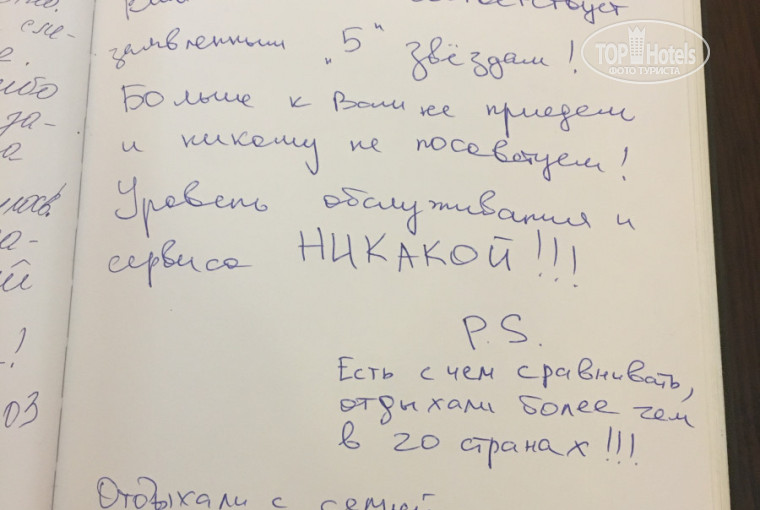 соответствует
заявленным „5" звёздам!
Больше к Вам не приедем
и никому не посоветуем!
Уровень обслуживания и
сервиса НИКАКОЙ!!!
P.S.
Есть с чем сравнивать,
отдыхали более чем
в 20 странах!!!
Отдыхали с семьёй
TOP Hotels
ФОТО ТУРИСТА
03